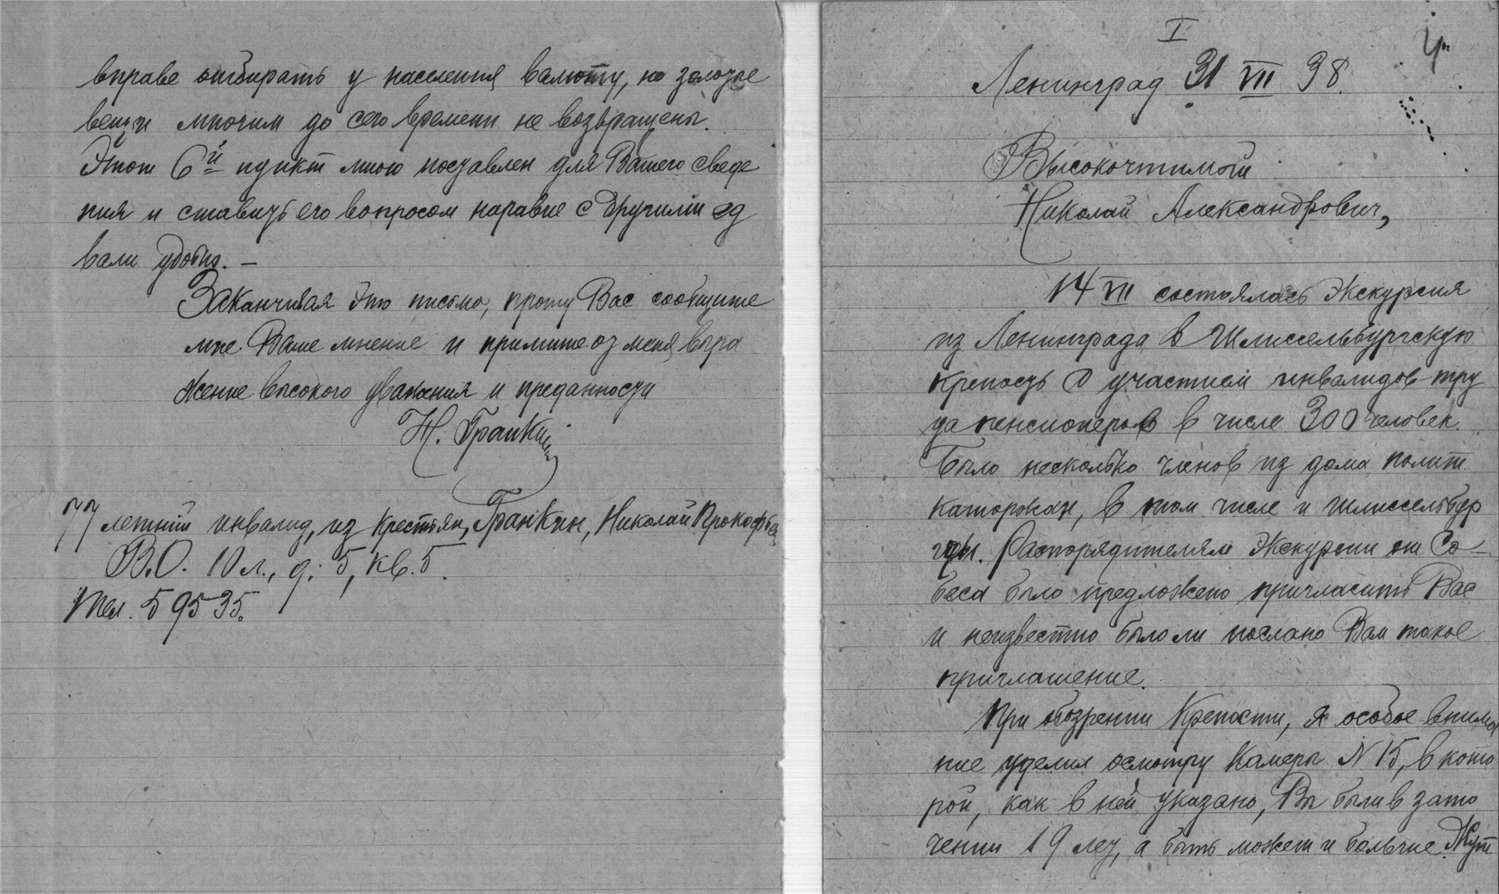 вправе отбирать у населения валюту, но золотые
вещи многим до сего времени не возвращены.
Этот 6й пункт мною поставлен для Вашего сведе
ния и ставить его вопросом наравне с другими ед
вали удобно. —
Заканчивая это письмо, прошу Вас сообщите
мне Ваше мнение и примите от меня выра
жение высокого уважения и преданности
Н. Гранкин
77 летний инвалид, из крестьян, Гранкин, Николай Прокофье
В.О. 10 л., д. 5, кв. 5.
Тел. 5 95 35.
I
4
Ленинград 31 VII 38.
Высокочтимой
Николай Александрович,
14 VII состоялась Экскурсия
из Ленинграда в Шлиссельбургскую
крепость с участием инвалидов тру
да пенсионеров в числе 300 человек.
Было несколько членов из дома полит
каторжан, в том числе и шлиссельбур
гцы. Распорядителям Экскурсии от Со-
беса было предложено пригласить Вас
и неизвестно было ли послано Вам такое
приглашение.
При обозрении Крепости, я особое внима
ние уделил осмотру Камеры N 15, в кото
рой, как в ней указано, Вы были в зато
чении 19 лет, а быть может и больше.